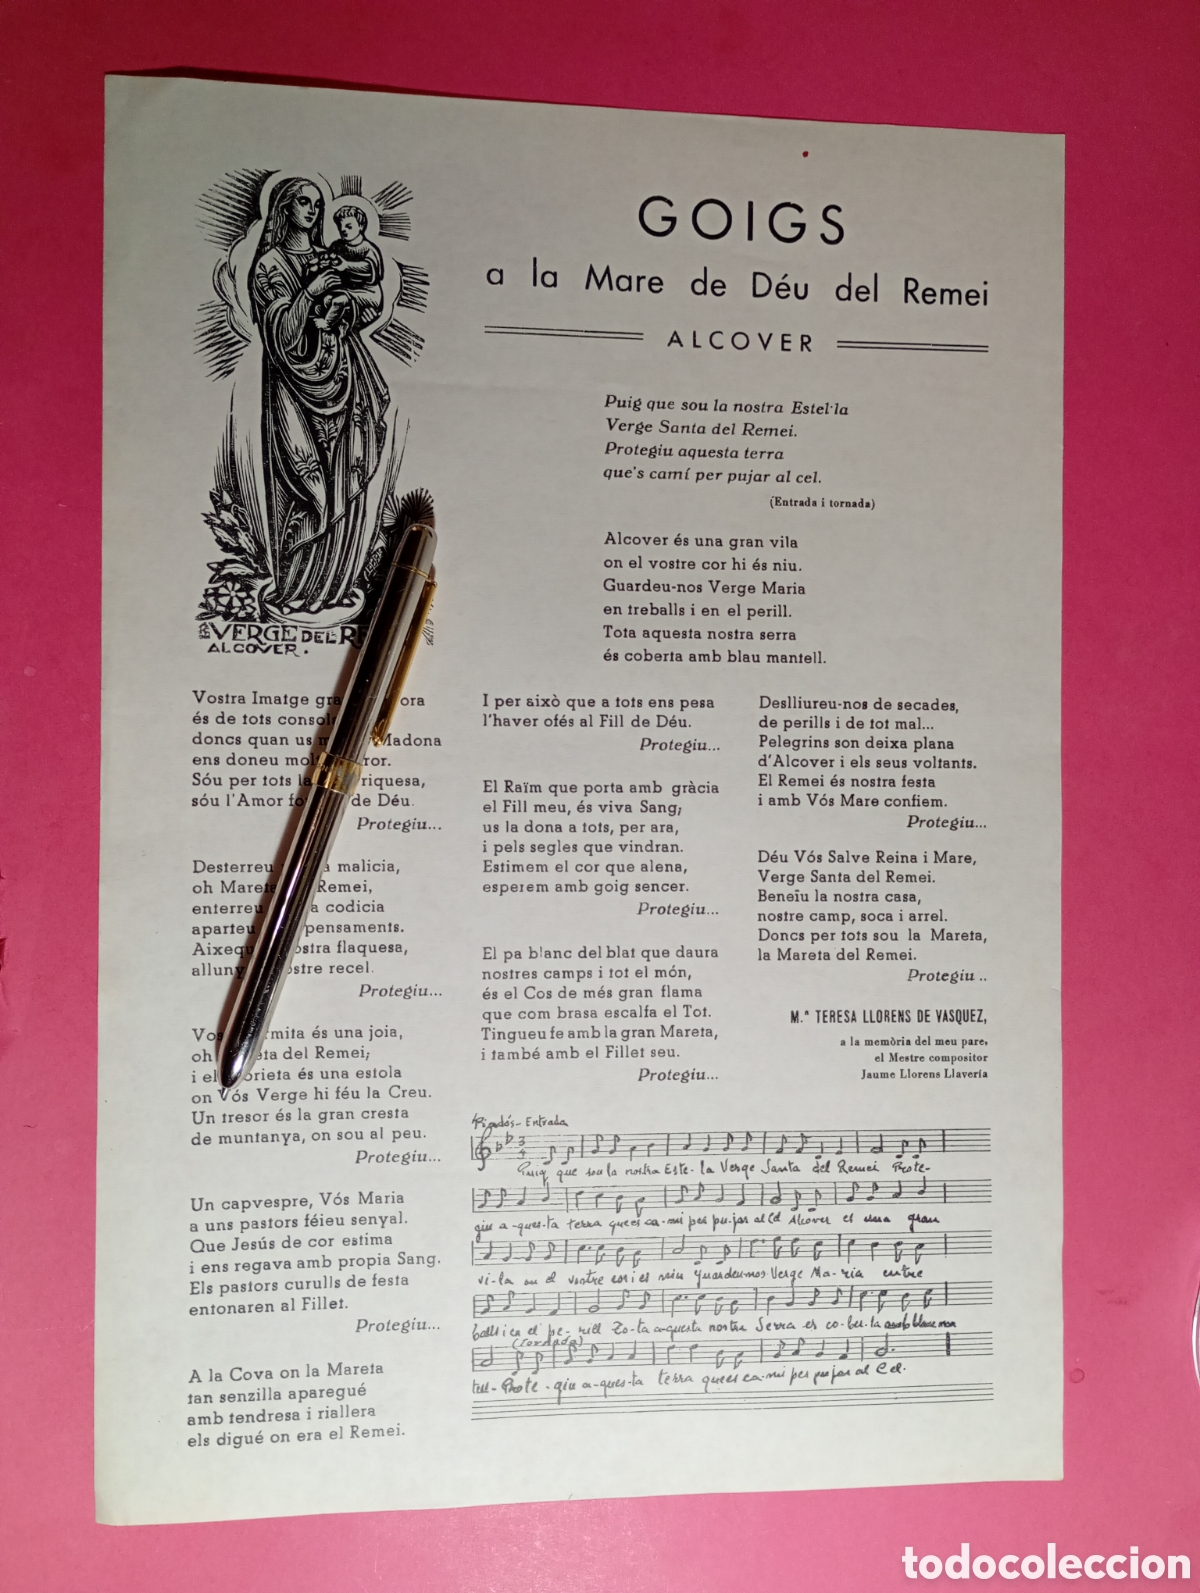 GOIGS
a la Mare de Déu del Remei
ALCOVER
VERGE DEL
ALCOVER.
Puig que sou la nostra Estel·la
Verge Santa del Remei.
Protegiu aquesta terra
que's camí per pujar al cel.
(Entrada i tornada)
Alcover és una gran vila
on el vostre cor hi és niu.
Guardeu-nos Verge Maria
en treballs i en el perill.
Tota aquesta nostra serra
és coberta amb blau mantell.
Vostra Imatge ora
és de tots
doncs quan us Madona
ens doneu
Sóu per tots riquesa,
sóu l'Amor de Déu.
Protegiu...
Desterreu malicia,
oh Remei,
enterreu codicia
aparteu pensaments.
flaquesa,
recel.
Protegiu...
és una joia,
oh del Remei;
i el és una estola
on Vós Verge hi féu la Creu.
Un tresor és la gran cresta
de muntanya, on sou al peu.
Protegiu...
Un capvespre, Vós Maria
a uns pastors féieu senyal.
Que Jesús de cor estima
i ens regava amb propia Sang.
Els pastors curulls de festa
entonaren al Fillet.
Protegiu...
A la Cova on la Mareta
tan senzilla aparegué
amb tendresa i riallera
els digué on era el Remei.
I per això que a tots ens pesa
l'haver ofés al Fill de Déu.
Protegiu...
El Raïm que porta amb gràcia
el Fill meu, és viva Sang;
us la dona a tots, per ara,
i pels segles que vindran.
Estimem el cor que alena,
esperem amb goig sencer.
Protegiu...
El pa blanc del blat que daura
nostres camps i tot el món,
és el Cos de més gran flama
que com brasa escalfa el Tot.
Tingueu fe amb la gran Mareta,
i també amb el Fillet seu.
Protegiu...
Deslliureu-nos de secades,
de perills i de tot mal...
Pelegrins son deixa plana
d'Alcover i els seus voltants.
El Remei és nostra festa
i amb Vós Mare confiem.
Protegiu...
Déu Vós Salve Reina i Mare,
Verge Santa del Remei.
Beneïu la nostra casa,
nostre camp, soca i arrel.
Doncs per tots sou la Mareta,
la Mareta del Remei.
Protegiu ..
M.ª TERESA LLORENS DE VASQUEZ,
a la memòria del meu pare,
el Mestre compositor
Jaume Llorens Llavería
Entrada
3
4
Puig que sou la nostra Este-la Verge Santa del Remei Prote-
giu a-ques-ta terra quees ca-mi per pu-jar al Cel Alcover es una gran
vi-la on el vostre cor i es niu Guardeu-nos Verge Ma-ria entre
balls i en el pe-rill To-ta a-questa nostra Serra es co-ber-ta
(Tornada)
tell-Prote-giu a-ques-ta terra quees ca-mi per pujar al Cel.
todocoleccion